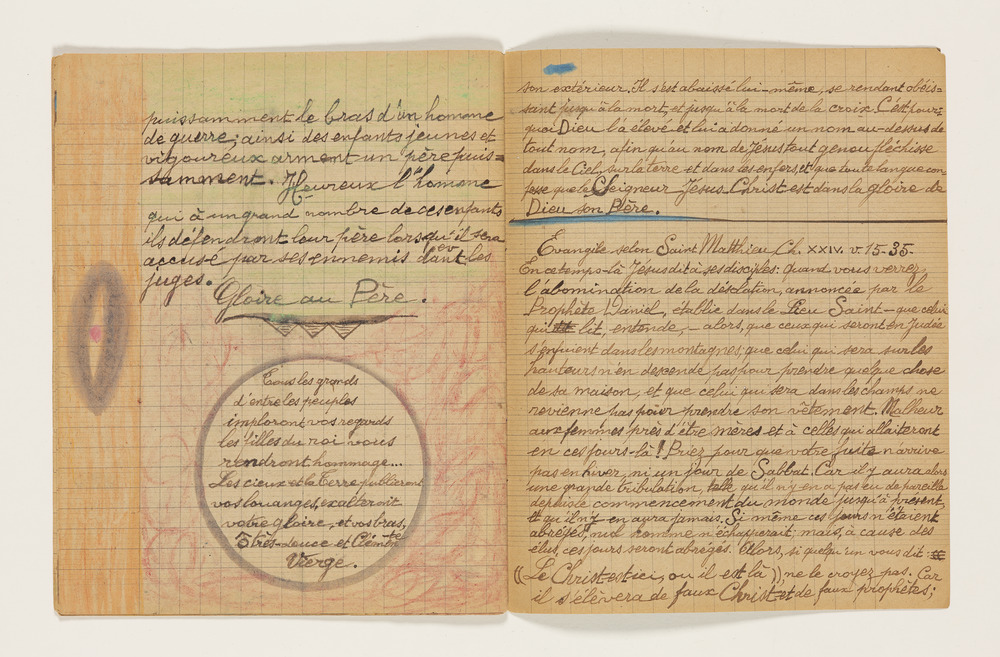 puissamment le bras d'un homme
de guerre; ainsi des enfants jeunes et
vigoureux arment un père puis=
samment. Heureux l'homme
qui à un grand nombre de ces enfants
ils défendront leur père lorsqu'il sera
accusé par ses ennemis devant les
juges.
Gloire au Père.
Tous les grands
d'entre les peuples
imploront vos regards
les filles du roi vous
rendront hommage...
Les cieux et la Terre publieront
vos louanges, exalteront
votre gloire, et vos bras,
O très-douce et Clémente
Vierge.
son extérieur. Il s'est abaissé lui-même, se rendant obéis=
sant jusqu'à la mort, et jusqu'à la mort de la croix. C'est pour=
quoi Dieu l'a élevé et lui a donné un nom au-dessus de
tout nom, afin qu'au nom de Jésus tout genou fléchisse
dans le Ciel, sur la terre et dans les enfers, et que toute langue con
fesse que le Seigneur Jésus. Christ est dans la gloire de
Dieu son Père.
Evangile selon Saint Matthieu Ch. XXIV. v. 15-35.
En ce temps-là Jésus dit à ses disciples: quand vous verrez
l'abomination de la désolation, annoncée par le
Prophète Daniel, établie dans le Lieu Saint - que celui
qui lit, entende, - alors, que ceux qui seront en Judée
s'enfuient dans les montagnes; que celui qui sera sur les
hauteurs n'en descende pas pour prendre quelque chose
de sa maison, et que celui qui sera dans les champs ne
revienne pas pour prendre son vêtement. Malheur
aux femmes près d'être mères et à celles qui allaiteront
en ces jours-là! Priez pour que votre fuite n'arrive
pas en hiver, ni un jour de Sabbat. Car il y aura alors
une grande tribulation, telle qu'il n'y en a pas eu de pareille
depuis le commencement du monde jusqu'à présent,
et qu'il n'y en aura jamais. Si même ces jours n'étaient
abrégés, nul homme n'échapperait; mais, à cause des
élus, ces jours seront abrégés. Alors, si quelqu'un vous dit:
((Le Christ est ici, ou il est là)), ne le croyez pas. Car
il s'élèvera de faux Christ et de faux prophètes;